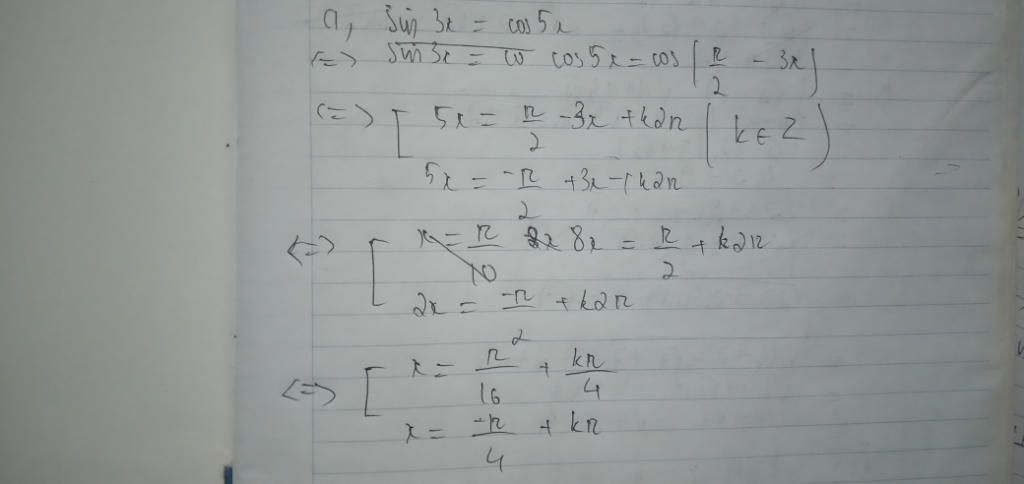 a, sin 3x = cos 5x
<=> sin 3x = co cos 5x = cos (π/2 - 3x)
<=> [ 5x = π/2 - 3x + k2π (k ∈ Z)
5x = -π/2 + 3x + k2π
<=> [ x = π/10 8x 8x = π/2 + k2π
2x = -π/2 + k2π
<=> [ x = π/16 + kπ/4
x = -π/4 + kπ